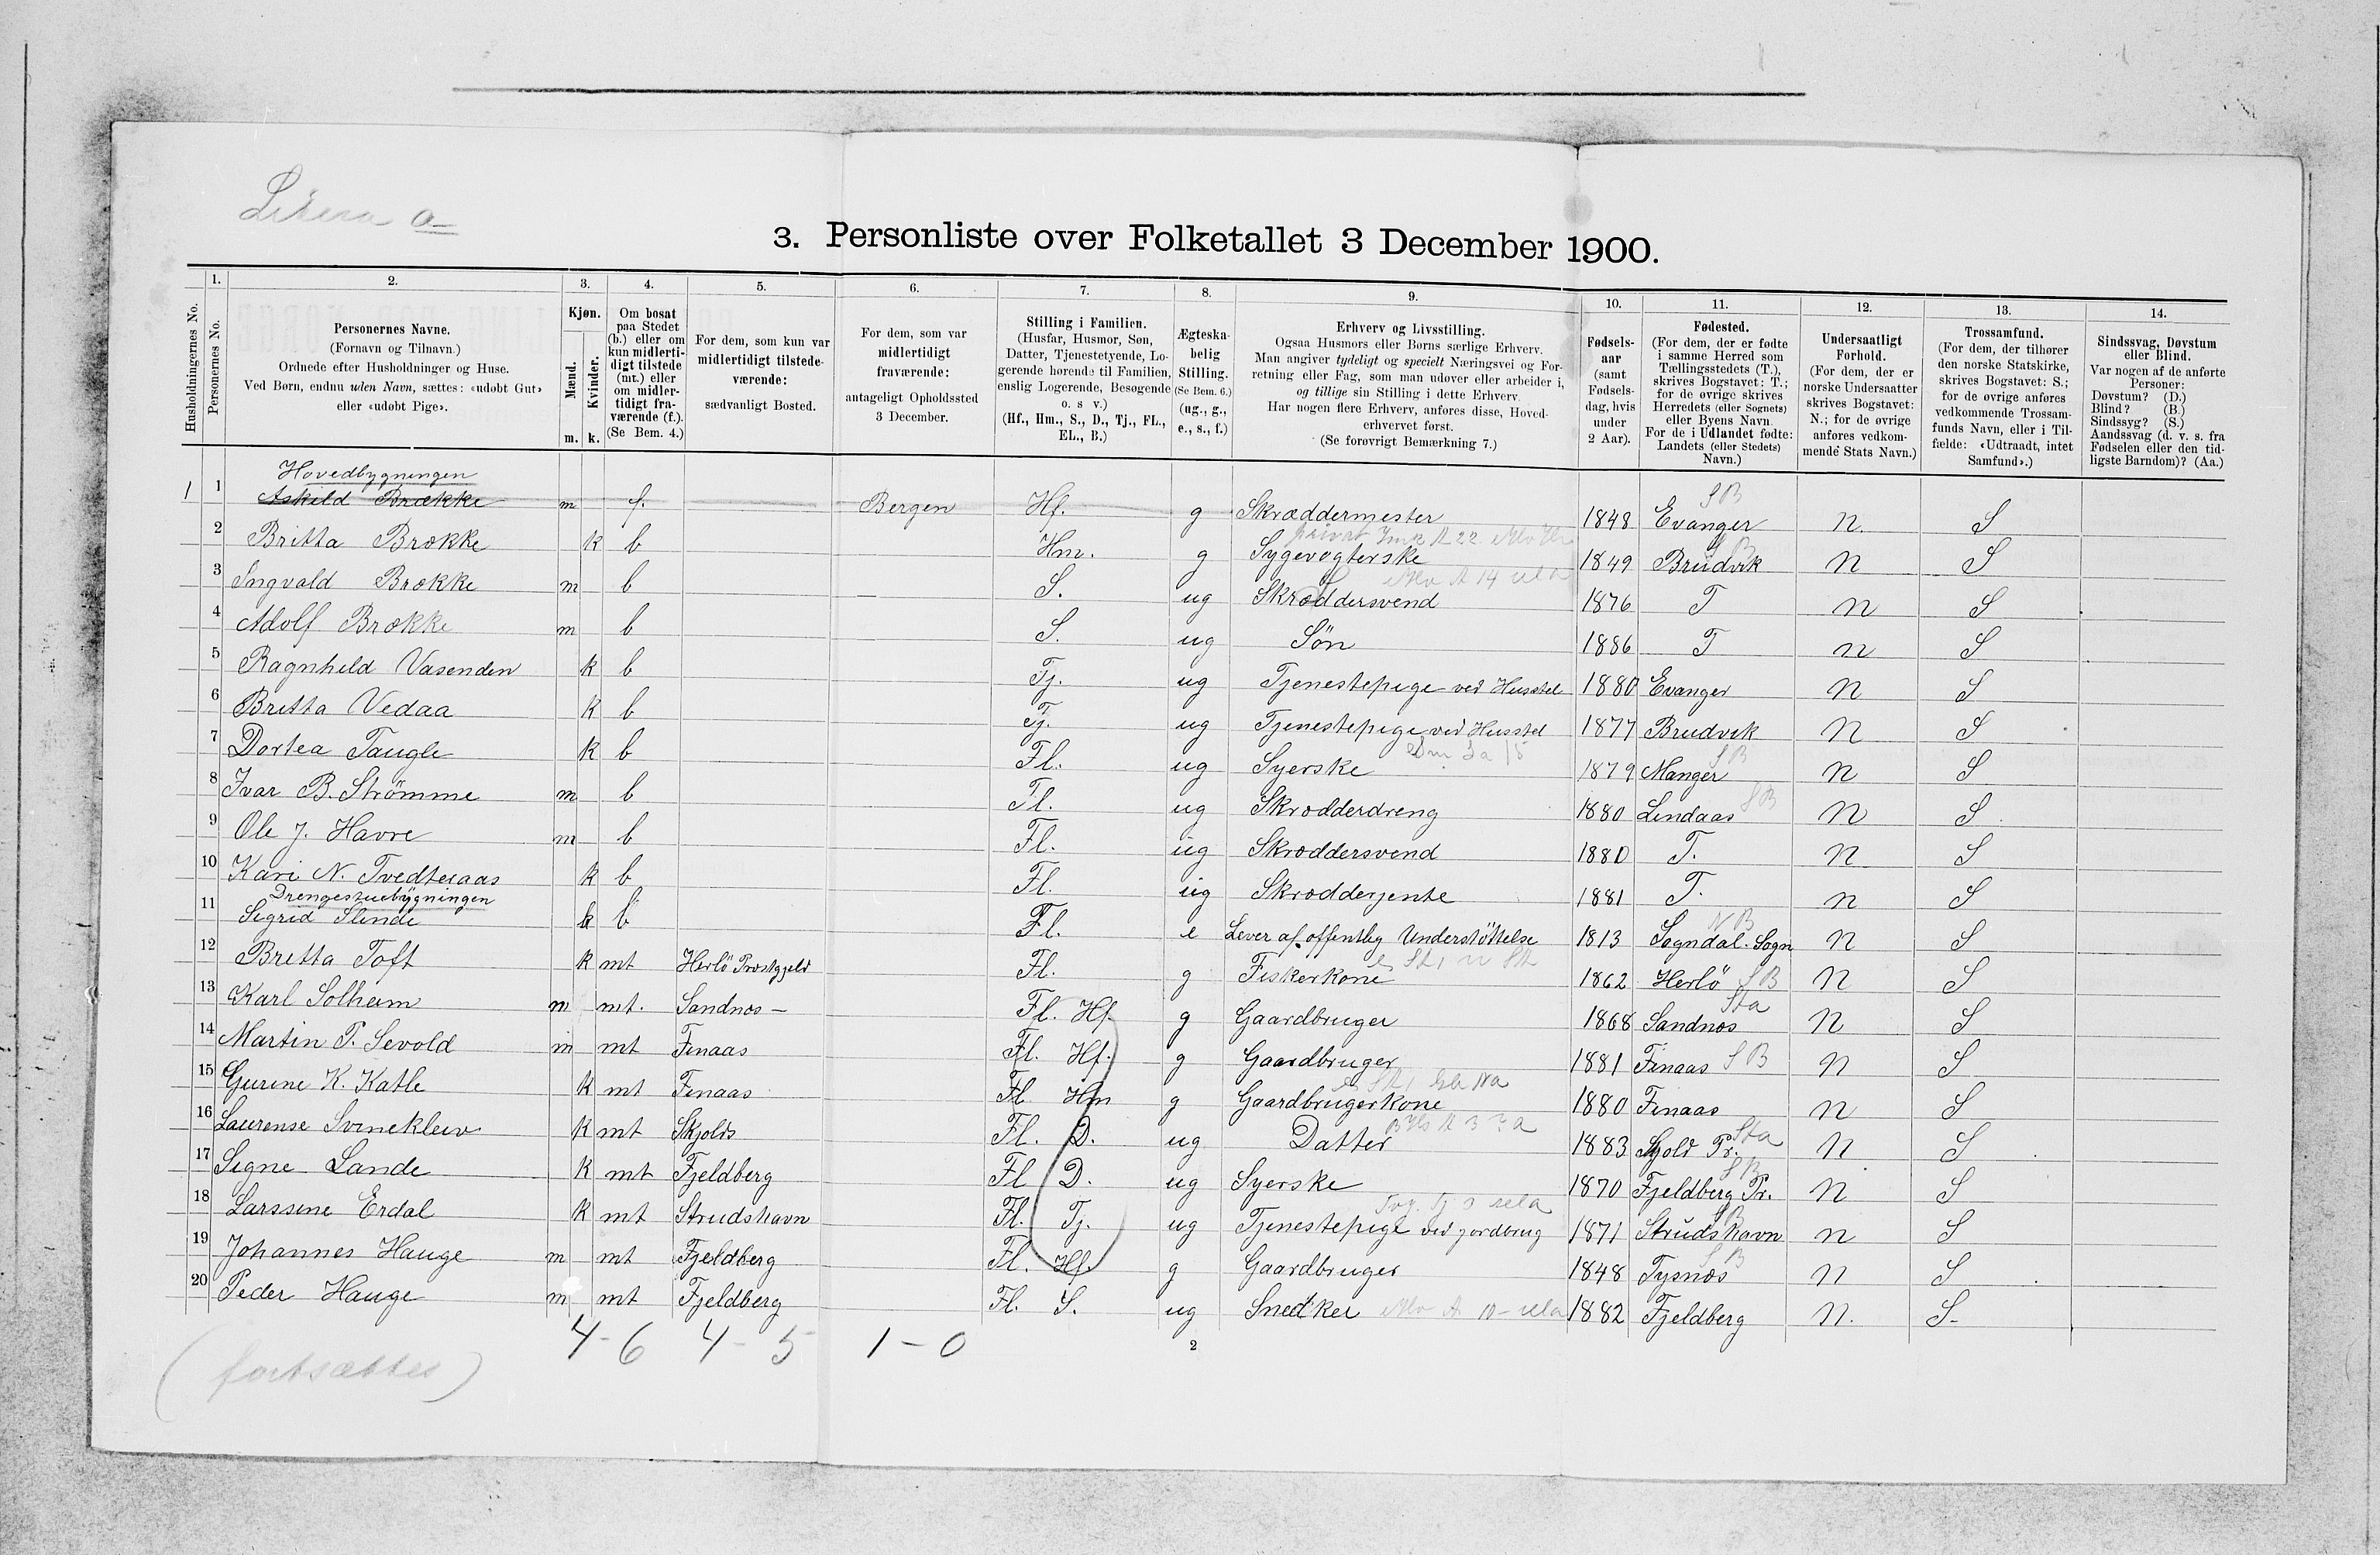 Litera a
3. Personliste over Folketallet 3 December 1900.
Husholdningernes No.
1.
Personernes No.
2.
Personernes Navne.
(Fornavn og Tilnavn.)
Ordnede efter Husholdninger og Huse.
Ved Børn, endnu uden Navn, sættes: «udøbt Gut»
eller «udøbt Pige».
3.
Kjøn.
Mænd.
Kvinder.
m. k.
4.
Om bosat
paa Stedet
(b.) eller om
kun midlerti-
digt tilstede
(mt.) eller
om midler-
tidigt fra-
værende (f.).
(Se Bem. 4.)
5.
For dem, som kun var
midlertidigt tilstede-
værende:
sædvanligt Bosted.
6.
For dem, som var
midlertidigt
fraværende:
antageligt Opholdssted
3 December.
7.
Stilling i Familien.
(Husfar, Husmor, Søn,
Datter, Tjenestetyende, Lo-
gerende hørende til Familien,
enslig Logerende, Besøgende
o. s v.)
(Hf., Hm., S., D., Tj., FL.,
EL., B.)
8.
Ægteska-
belig
Stilling.
(Se Bem. 6.)
(ug., g.,
e., s., f.)
9.
Erhverv og Livsstilling.
Ogsaa Husmors eller Børns særlige Erhverv.
Man angiver tydeligt og specielt Næringsvei og For-
retning eller Fag, som man udøver eller arbeider i,
og tillige sin Stilling i dette Erhverv.
Har nogen flere Erhverv, anføres disse, Hoved-
erhvervet først.
(Se forøvrigt Bemærkning 7.)
10.
Fødsels-
aar
(samt
Fødsels-
dag, hvis
under
2 Aar).
11.
Fødested.
(For dem, der er fødte
i samme Herred som
Tællingsstedets (T.),
skrives Bogstavet: T.;
for de øvrige skrives
Herredets (eller Sognets)
eller Byens Navn.
For de i Udlandet fødte:
Landets (eller Stedets)
Navn.)
12.
Undersaatligt
Forhold.
(For dem, der er
norske Undersaatter
skrives Bogstavet:
N.; for de øvrige
anføres vedkom-
mende Stats Navn.)
13.
Trossamfund.
(For dem, der tilhører
den norske Statskirke,
skrives Bogstavet: S.;
for de øvrige anføres
vedkommende Trossam-
funds Navn, eller i Til-
fælde: «Udtraadt, intet
Samfund».)
14.
Sindssvag, Døvstum
eller Blind.
Var nogen af de anførte
Personer:
Døvstum? (D.)
Blind? (B.)
Sindssyg? (S.)
Aandssvag (d. v. s. fra
Fødselen eller den tid-
ligste Barndom)? (Aa.)
Hovedbygningen S B
1 1 Askild Brække m f. Bergen Hf. g Skræddermester 1848 Evanger N. S
2 Britta Brække k b Hm. g Sygevogterske 1849 Brudvik N S
3 Ingvald Brække m b S. ug Skræddersvend 1876 T N S
4 Adolf Brække m b S. ug Søn 1886 T N S
5 Ragnhild Vasenden k b Tj. ug Tjenestepige ved Husstel 1880 Evanger N S
6 Britta Vedaa k b Tj. ug Tjenestepige ved Husstel 1877 Brudvik N S
7 Dortea Taugle k b Fl. ug Syerske 1879 Manger S B N S
8 Ivar B. Strömme m b Fl. ug Skrædderdreng 1880 Lindaas S B N S
9 Ole J. Havre m b Fl. ug Skræddersvend 1880 T. N S
10 Kari N. Tvedteraas k b Fl. ug Skrædderjente 1881 T. N S
Drengestuebygningen
11 Sigrid Slinde k b Fl. e Lever af offentlig Understöttelse 1813 Sogndal. Sogn N B N S
12 Britta Toft k mt Herlö Præstgjeld Fl. g Fiskerkone 1862 Herlö S B N S
13 Karl Solheim m mt. Sandnæs Fl. Hf. g Gaardbruger 1868 Sandnæs Sta N S
14 Martin P. Sevold m mt Finaas Fl. Hf. g Gaardbruger 1881 Finaas S B N S
15 Gurine K. Katle k mt Finaas Fl Hm g Gaardbrugerkone 1880 Finaas N S
16 Laurense Svinekleiv k mt Skjolds Fl. D. ug Datter 1883 Skjold Pr. Sta N S
17 Signe Lande k mt Fjeldberg Fl D. ug Syerske 1870 Fjeldberg Pr. S B N S
18 Larssine Erdal k mt Strudshavn Fl. Tj. ug Tjenestepige ved jordbrug 1871 Strudshavn S B N S
19 Johannes Hauge m mt Fjeldberg Fl. Hf. g Gaardbruger 1848 Tysnæs S B N S
20 Peder Hauge m mt Fjeldberg Fl. S. ug Snedker 1882 Fjeldberg N. S.
4-6 4-5 1-0 2
(fortsættes)